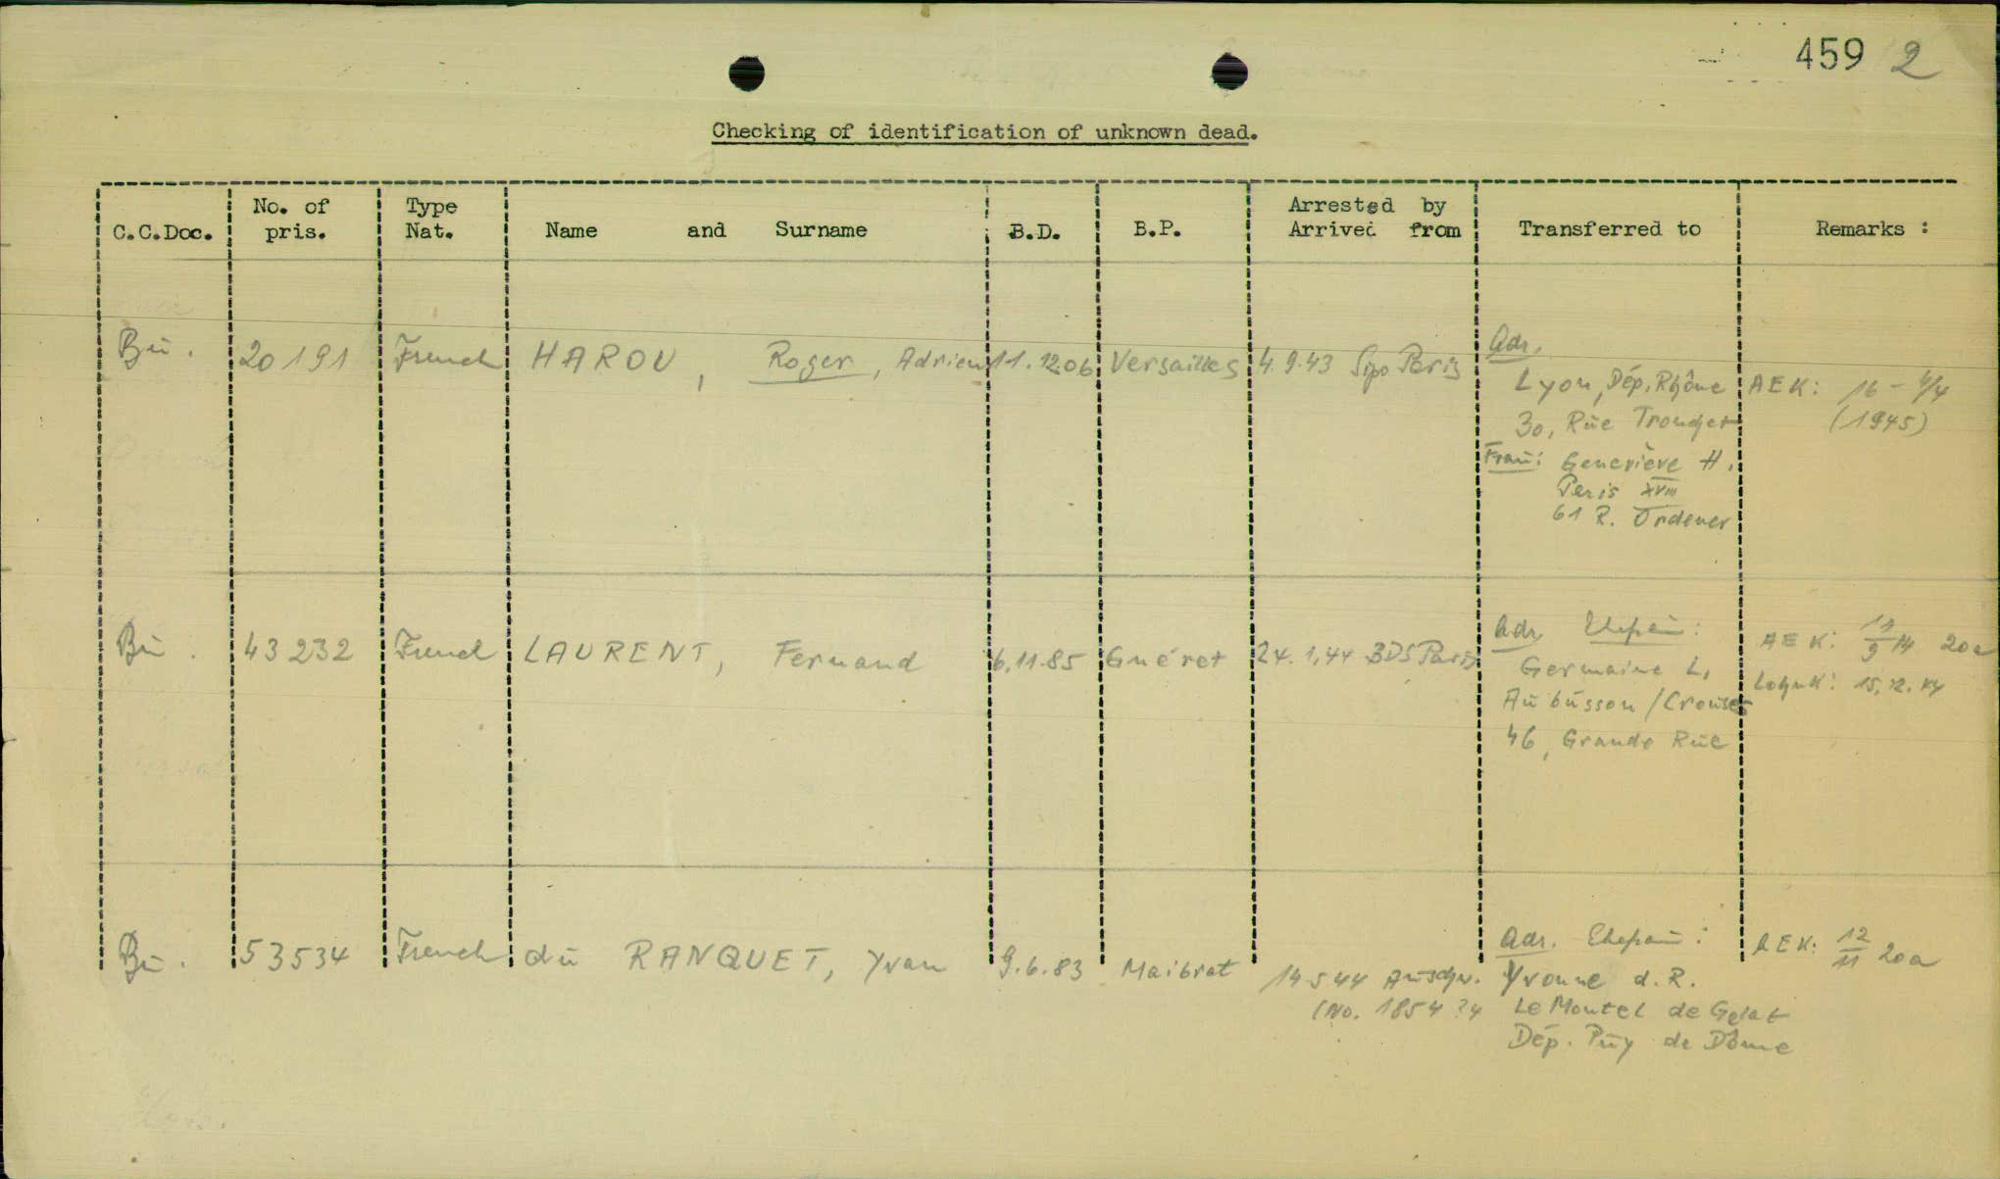 459 2
Checking of identification of unknown dead.
C.C.Doc. No. of pris. Type Nat. Name and Surname B.D. B.P. Arrested by Arrived from Transferred to Remarks :
Bü. 20191 French HAROU, Roger, Adrien 11.12.06 Versailles 4.9.43 Sipo Paris Adr.
Lyon, Dép. Rhône AEK: 16 - 4/4
30, Rue (1945)
Frau: Geneviève H.
Paris XVIII
61 R. Ordener
Bü. 43232 French LAURENT, Fernand 6.11.85 Guéret 24.1.44 BDS Paris Adr. Ehefrau:
Germaine L. AEK: 11/9 14 20a
Aubusson/Creuse 15.12.44
46, Grande Rue
Bü. 53534 French du RANQUET, Yvan 9.6.83 Maibrat 14.5.44 Auschw. Adr. Ehefrau: AEK: 12/11 20a
(No. 1854?4 Yvonne d. R.
Le Montel de Gelat
Dép. Puy de Dôme